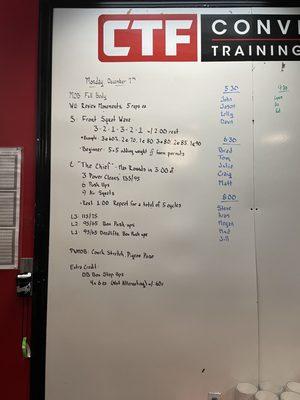 CTF CONVI
TRAINING
Monday December 7th
MOB: Full Body
WU: Review Movements 5 reps ea
S: Front Squat Wave
3-2-1-3-2-1 w/ 2:00 rest
Beginner: 5x5 adding weight if form permits
C: "The Chief" - Max Rounds in 3:00 of
3 Power Cleans 135/95
6 Push Ups
9 Air Squats
- Rest 1:00. Repeat for a total of 5 cycles
L3: 115/75
L2: 95/65 Box Push ups
L1: 95/65 Deadlifts, Box Push ups
PWMOB: Couch Stretch, Pigeon Pose
Extra Credit:
DB Box Step Ups
4x6 ea (Not Alternating) w/ 60s
5:30
John
Jason
Kelly
Dave
6:30
Brad
Tom
Julie
Craig
Matt
8:00
Steve
Megan
Jill
9:30